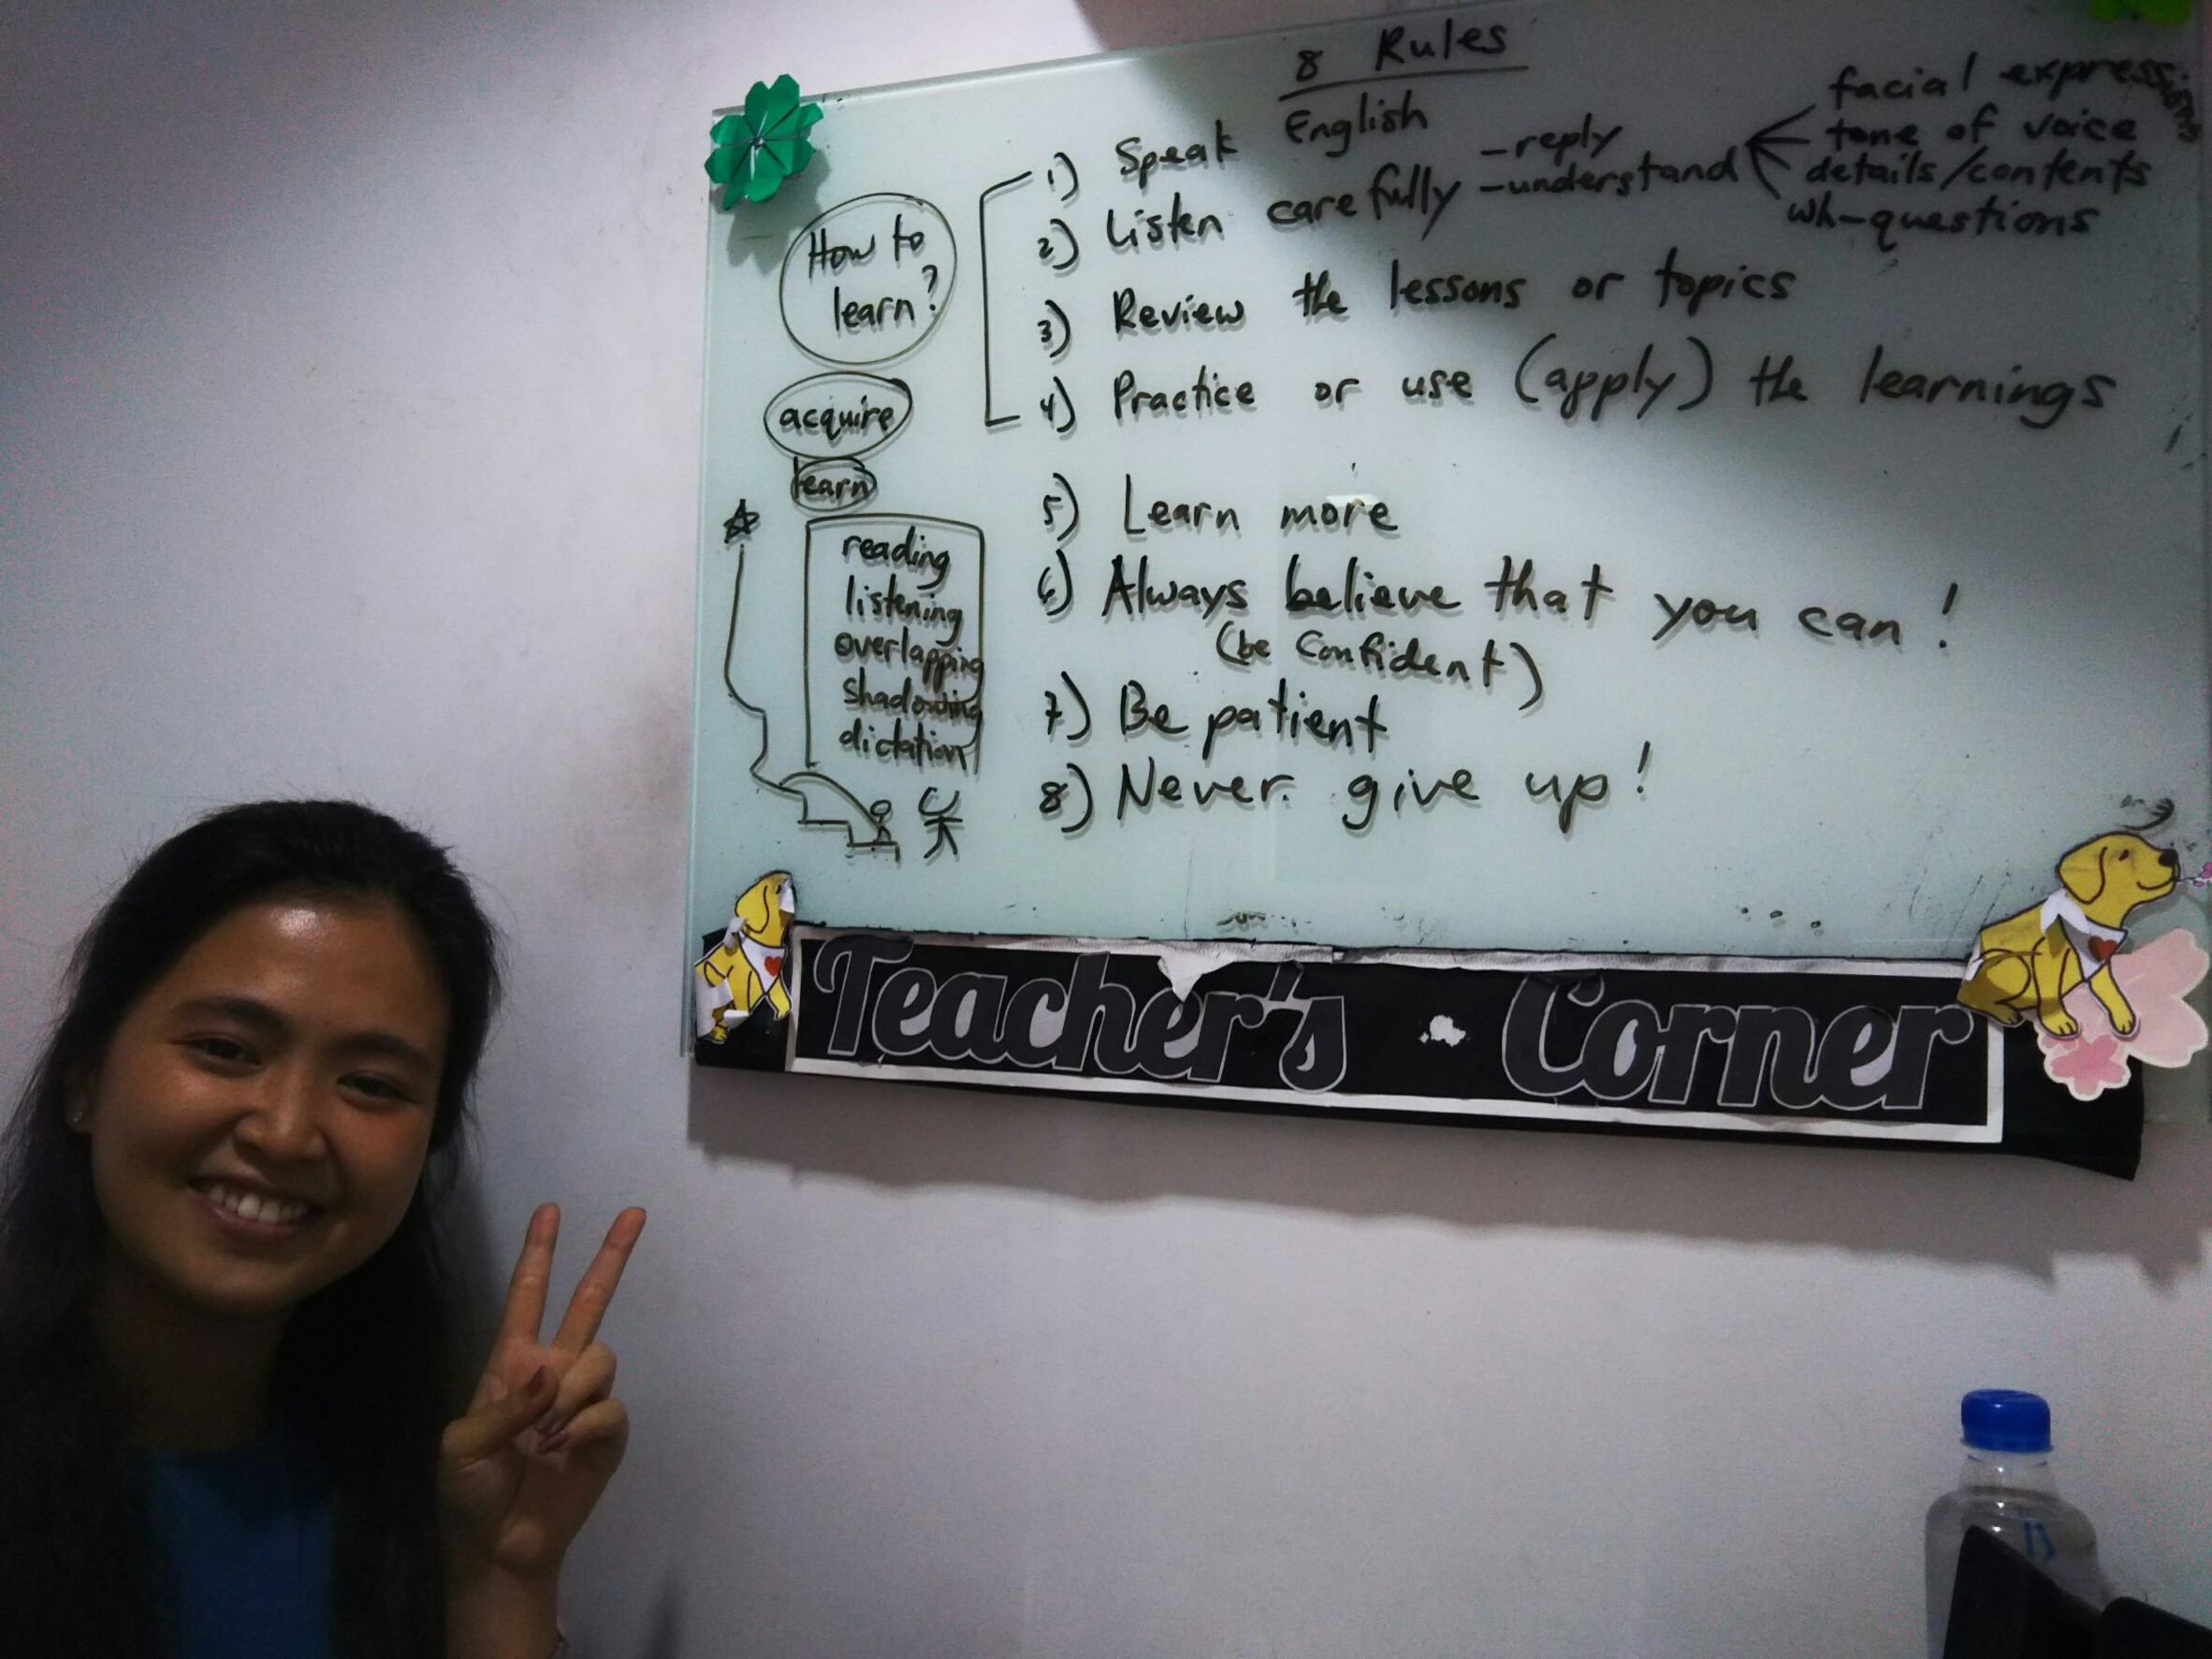 8 Rules
1) Speak English
2) Listen carefully -reply
-understand
facial expressions
tone of voice
details/contents
wh-questions
3) Review the lessons or topics
4) Practice or use (apply) the learnings
5) Learn more
6) Always believe that you can!
(be confident)
7) Be patient
8) Never give up!
How to
learn?
acquire
learn
reading
listening
overlapping
shadowing
dictation
Teacher's Corner